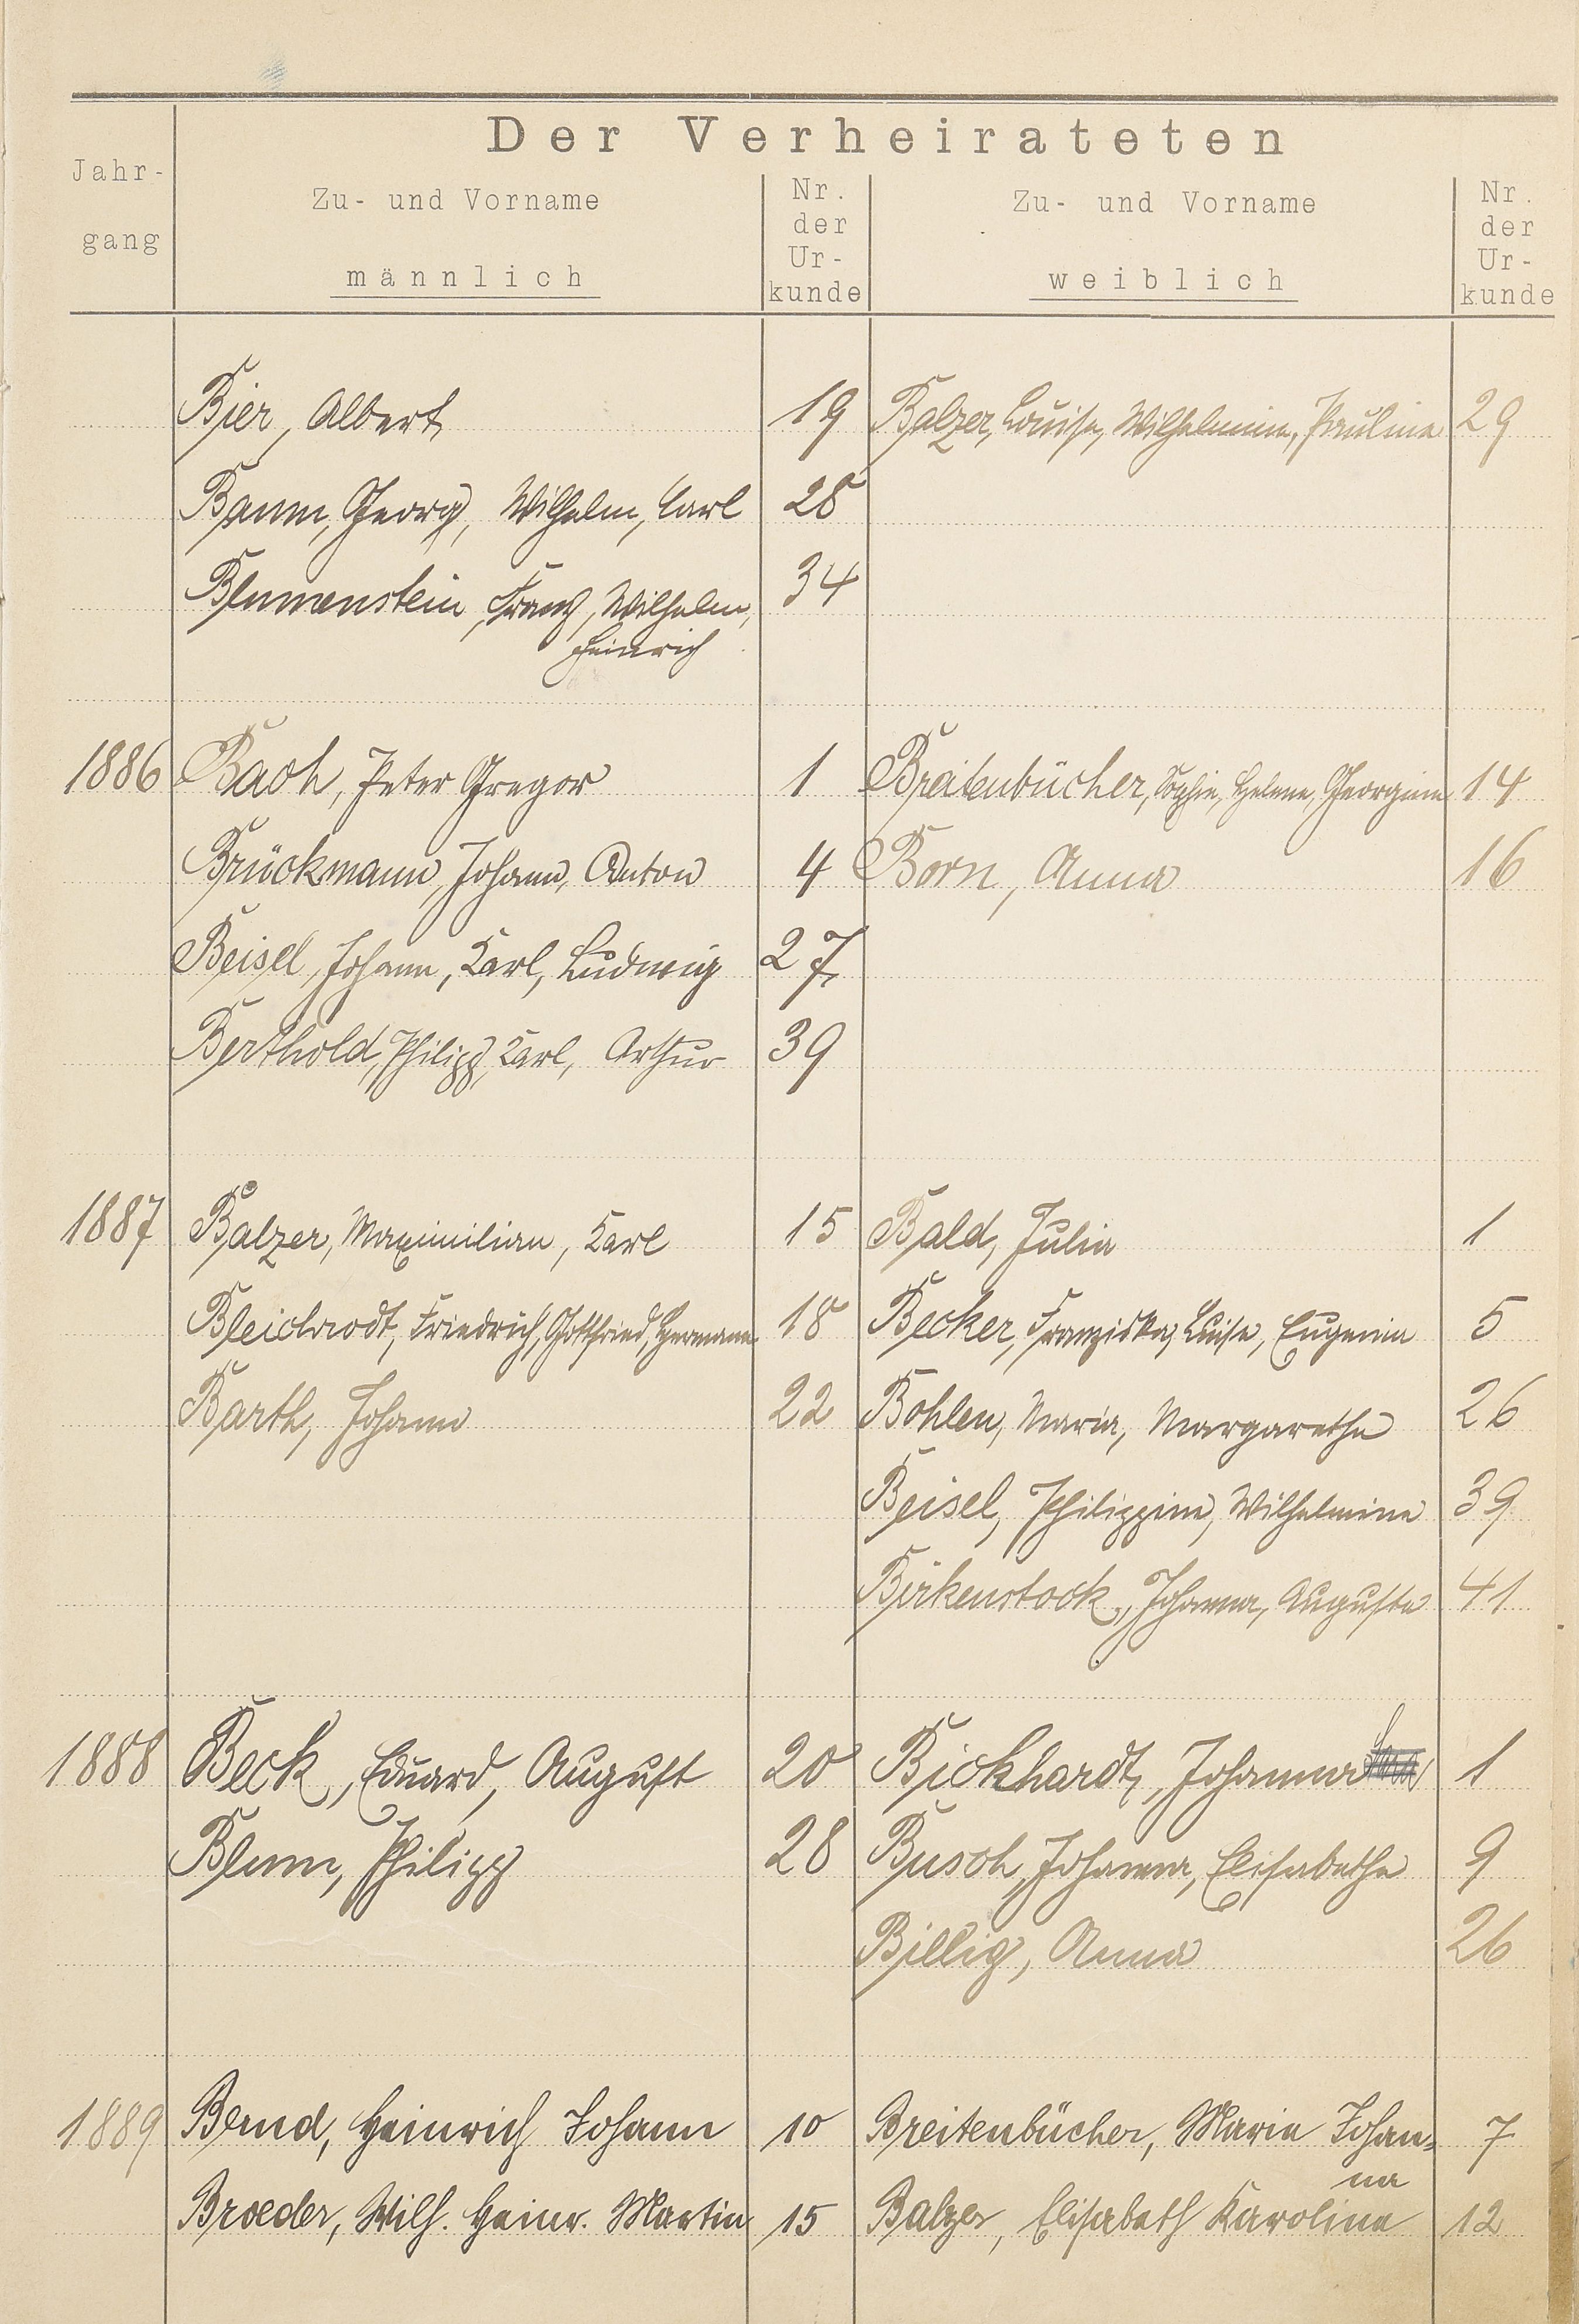 Der Verheirateten
Jahr-
gang
Zu- und Vorname
männlich
Nr.
der
Ur-
kunde
Zu- und Vorname
weiblich
Nr.
der
Ur-
kunde
Bier, Albert 19 Balzer, Louise, Wilhelmine, Pauline 29
Baum, Georg, Wilhelm, Carl 28
Blumenstein, Franz, Wilhelm, 34
Heinrich
1886 Bach, Peter Gregor 1 Breitenbücher, Sophie, Helene, Georgine 14
Brückmann, Johann, Anton 4 Born, Anna 16
Beisel, Johann, Karl, Ludwig 27
Berthold, Philipp, Karl, Arthur 39
1887 Balzer, Maximilian, Karl 15 Bald, Julia 1
Bleichrodt, Friedrich, Gottfried, Hermann 18 Becker, Franziska, Luise, Eugenia 5
Barth, Johann 22 Bohlen, Maria, Margarethe 26
Beisel, Philippine, Wilhelmine 39
Birkenstock, Johanna, Auguste 41
1888 Beck, Eduard, August 20 Bickhardt, Johanna 1
Blum, Philipp 28 Busch, Johanna, Elisabethe 9
Billig, Anna 26
1889 Bernd, Heinrich Johann 10 Breitenbücher, Maria Johan- 7
na
Broeder, Wilh. Heinr. Martin 15 Balzer, Elisabeth Karoline 12